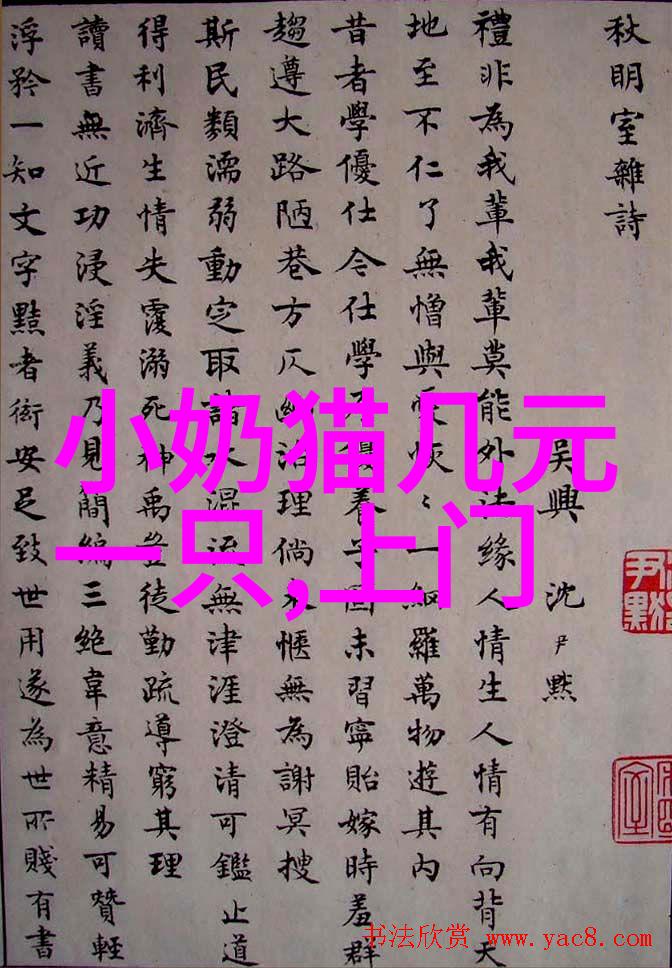 秋明室雜詩
吳興 沈尹默
禮非為我輩我輩莫能外法緣人情生人情有向背天
地至不仁了無憎與愛恢〻一網羅萬物遊其內
昔者學優仕今仕學不優養子國未習寧貽嫁時羞群
趨遵大路陋巷方仄幽治理倘不愜無為謝冥搜
斯民類濡弱動定取諸水混流無津涯澄清可鑑止道
得利濟生情失覆溺死神禹豈徒勤疏導窮其理
讀書無近功浸淫義乃見簡編三絕韋意精易可贊輕
浮矜一知文字黠者衒安足致世用遂為世所賤有書
小奶猫几元
一只,上门
尹默
书法欣赏 www.yac8.com